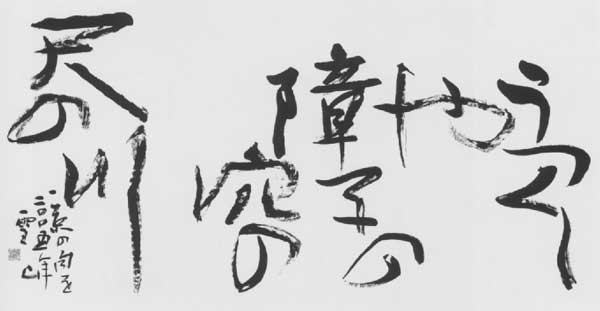 うつくし
や
障子の
穴の
天の川
一茶の句を